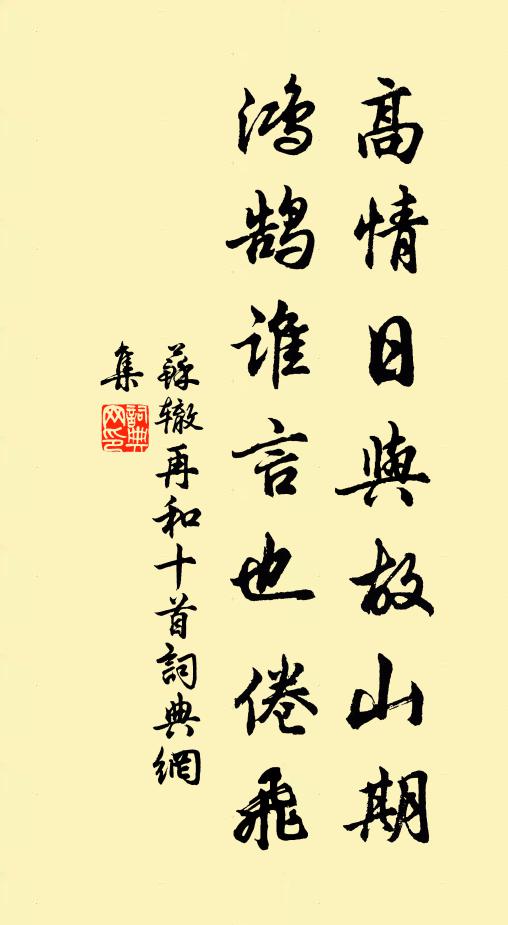 高情日與故山期
鴻鵠誰言也倦飛
蘇辙再和十首詞典網
集
詞典
网印